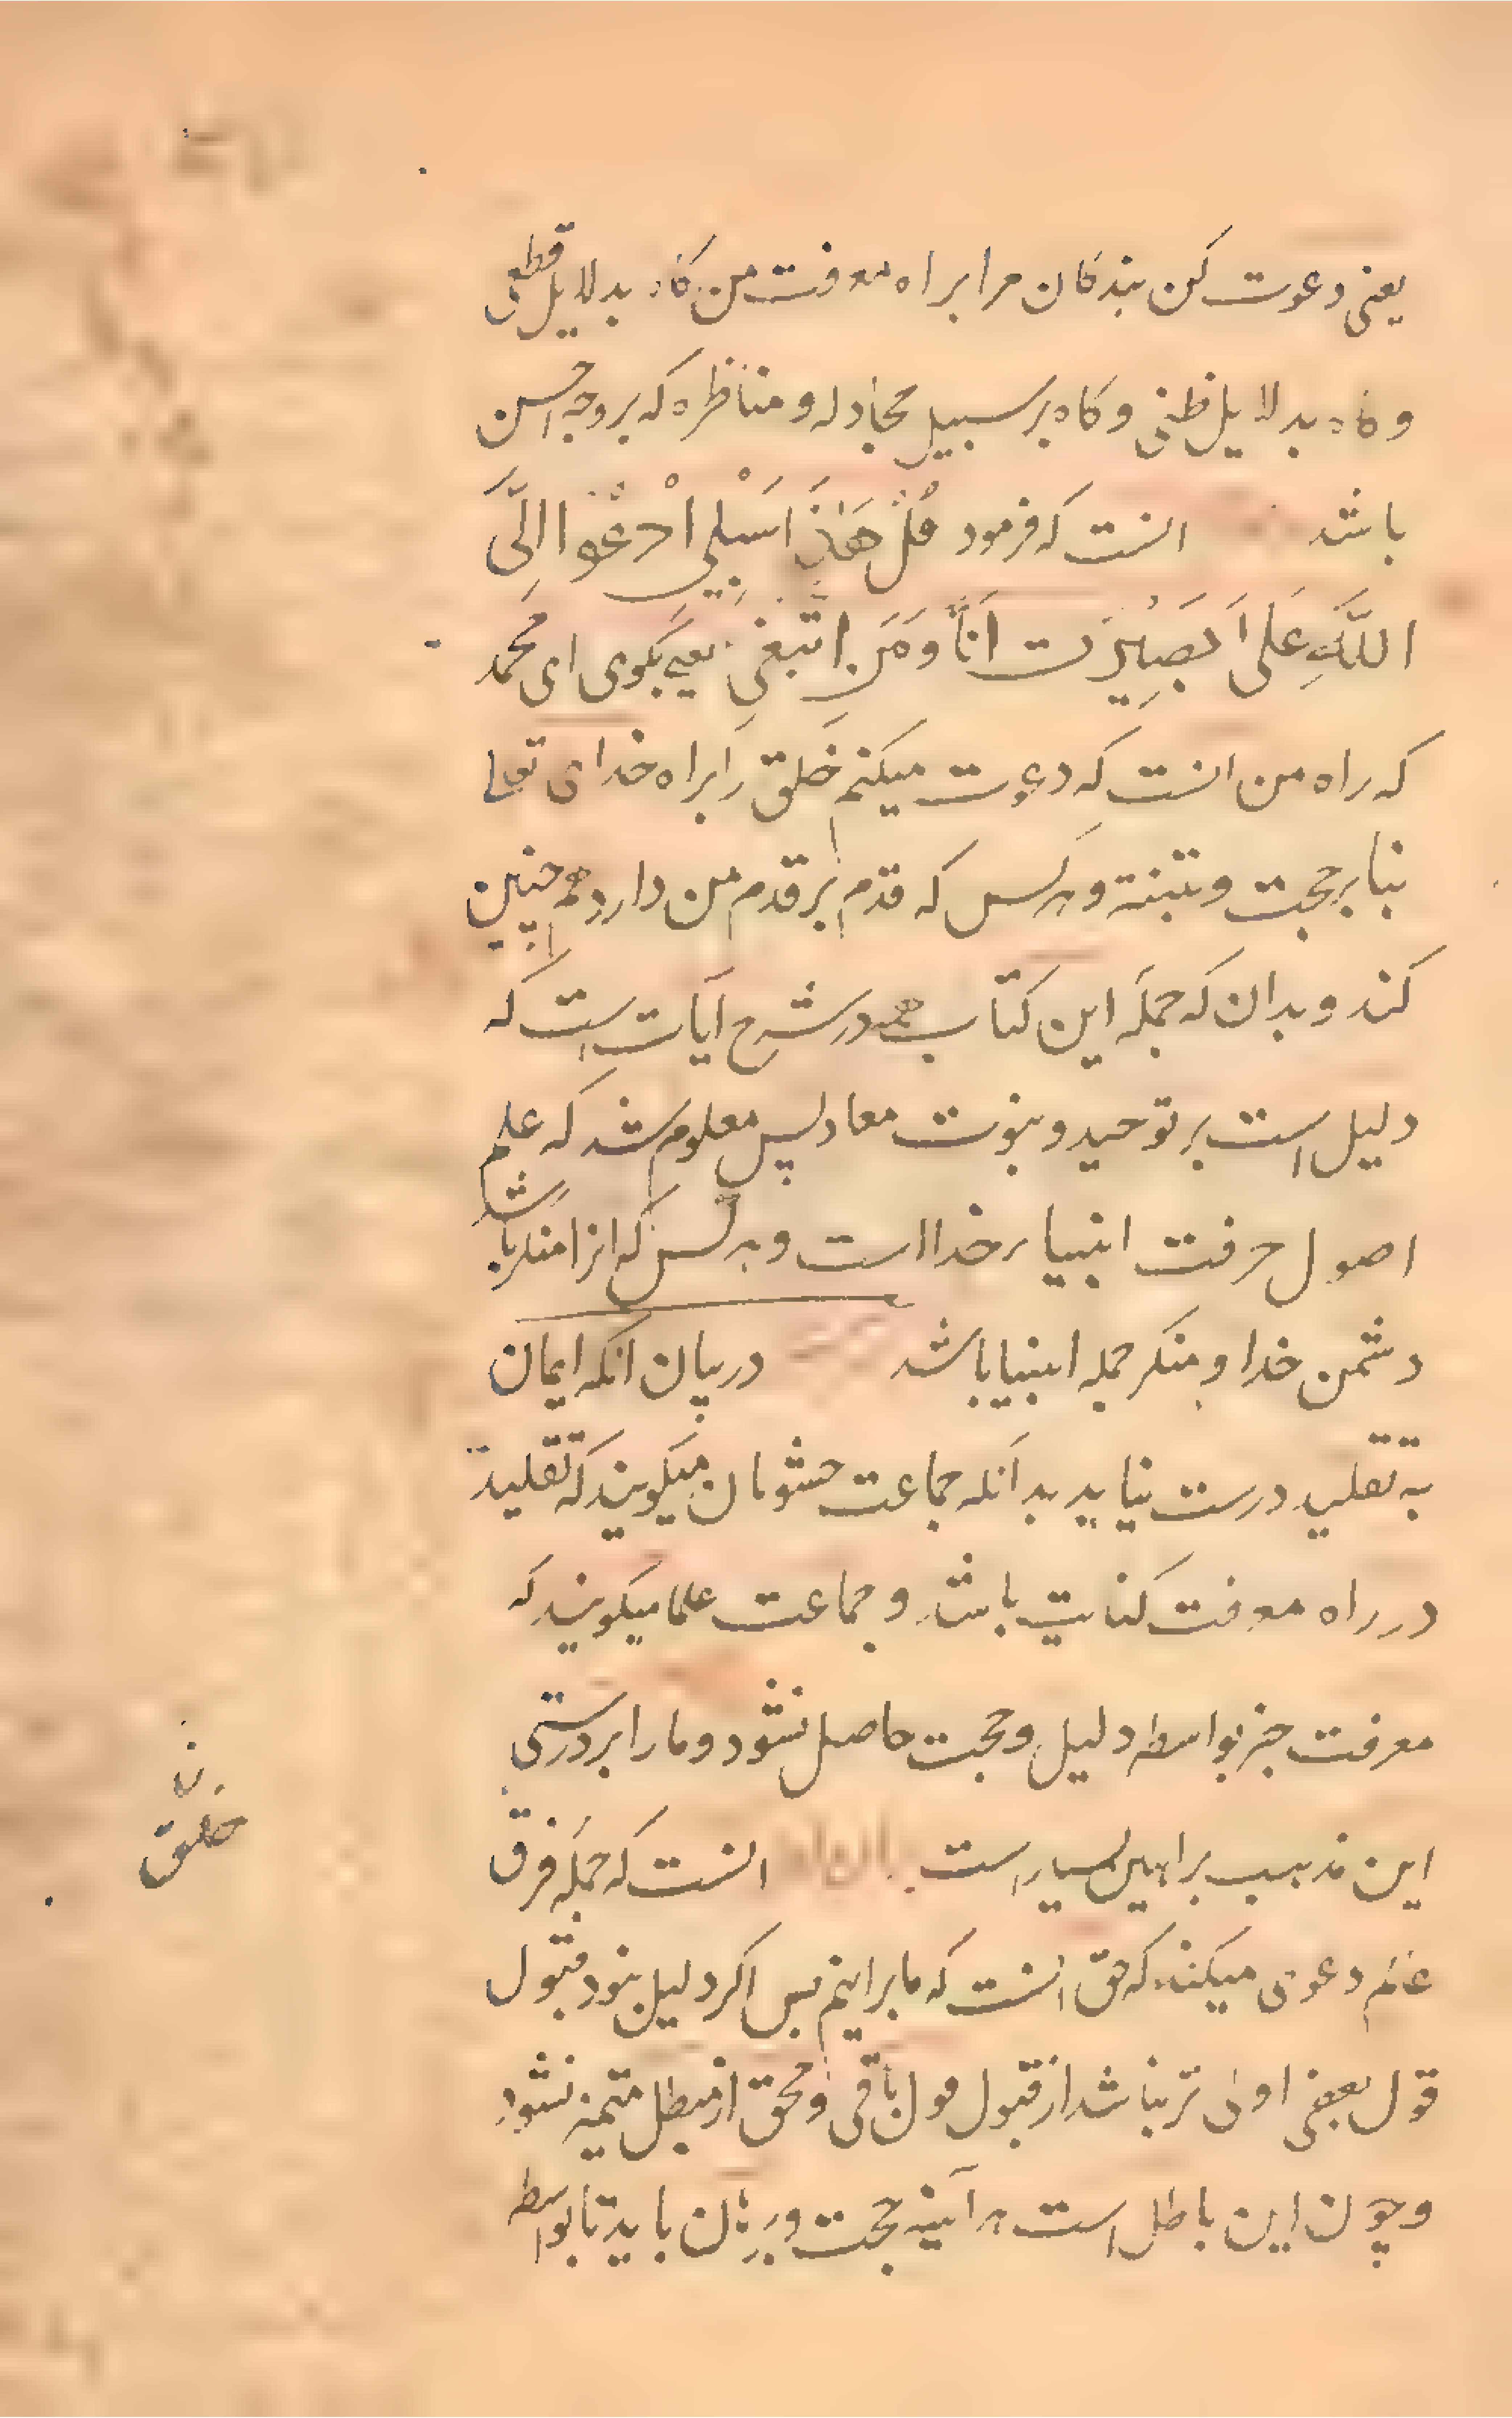 یعنی دعوت کن بندکان مرا براه معرفت من کاه بدلایل قطعی
و کاه بدلایل ظنی و کاه بر سبیل مجادله و مناظره که بر وجه احسن
باشد انست که فرمود قُلْ هَذَا سَبِيلِي اَدْعُوا اِلَی
اللَّهِ عَلَی بَصِیرَت اَنَا وَمَنِ اتَّبَعَنِی یعنی بکوی ای محمد
که راه من انست که دعوت میکنم خلق را براه خدای تعالی
بنا بر حجت و بینة و هرکس که قدم بر قدم من دارد همچنین
کند و بدان که جمله این کتاب همه در شرح آیات است که
دلیل است بر توحید و نبوت معاد پس معلوم شد که علم
اصول حرفت انبیاء خدا است و هرکس که انرا منکر باشد
دشمن خدا و منکر جمله انبیا باشد در بیان انکه ایمان
به تقلید درست نیاید بدانکه جماعت حشویان میکویند که تقلید
در راه معرفت کفایت باشد و جماعت علما میکویند که
معرفت جز بواسطه دلیل و حجت حاصل نشود و ما را بر درستی
این مذهب براهین بسیار است انست که جمله فرق
عالم دعوی میکنند که حق انست که ما برانیم پس اکر دلیل نبود قبول
قول بعضی اولی تر نباشد از قبول قول باقی و محق از مبطل متمیز نشود
و چون این باطل است هر آینه حجت و برهان باید تا بواسطه
ن
خلق